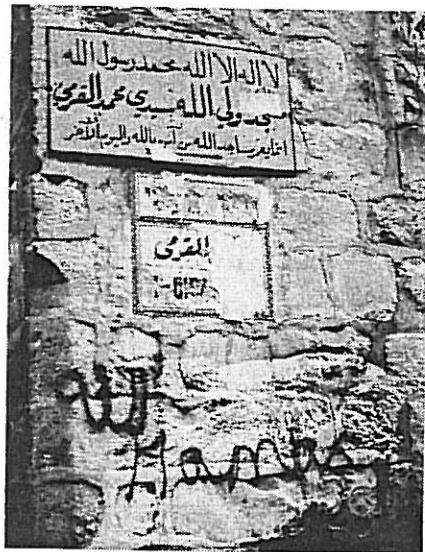 لا إله إلا الله محمد رسول الله
مسجد ولي الله سيدي محمد القرمي
إنما يعمر مساجد الله من آمن بالله واليوم الآخر
القرمي
الله
Hamas